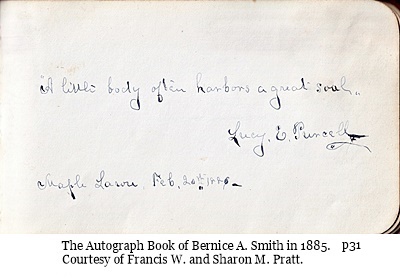 "A little body often harbors a great soul."
Lucy. E. Purcell
Maple Lawn. Feb. 20th 1886
The Autograph Book of Bernice A. Smith in 1885. p31
Courtesy of Francis W. and Sharon M. Pratt.